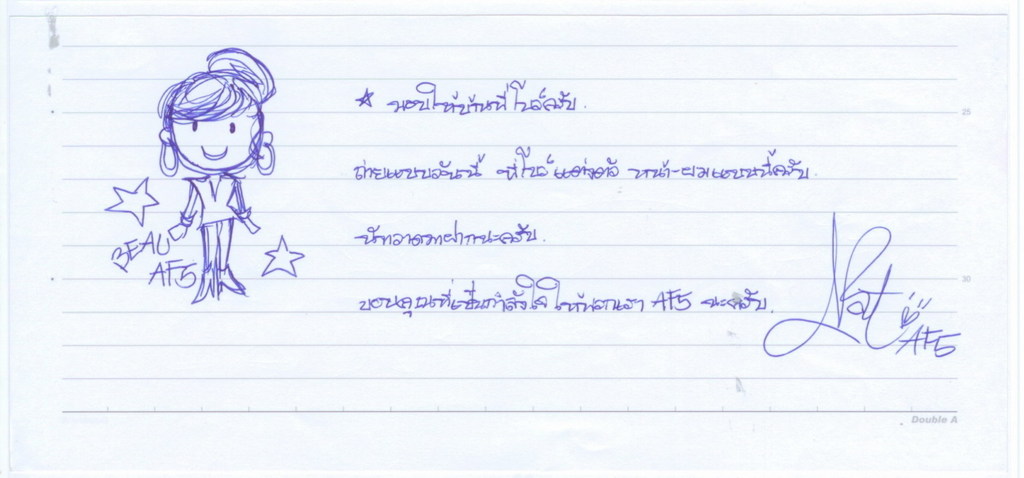 มอบให้บ้านพี่โบว์ครับ.
ถ่ายแบบวันนี้ พี่โบว์แต่งตัว หน้า-ผมแบบนี้ครับ.
นัทวาดมาฝากนะครับ.
BEAU
AF5
ขอบคุณที่เป็นกำลังใจให้พวกเรา AF5 นะครับ.
Nat
AF5
25
30
Double A